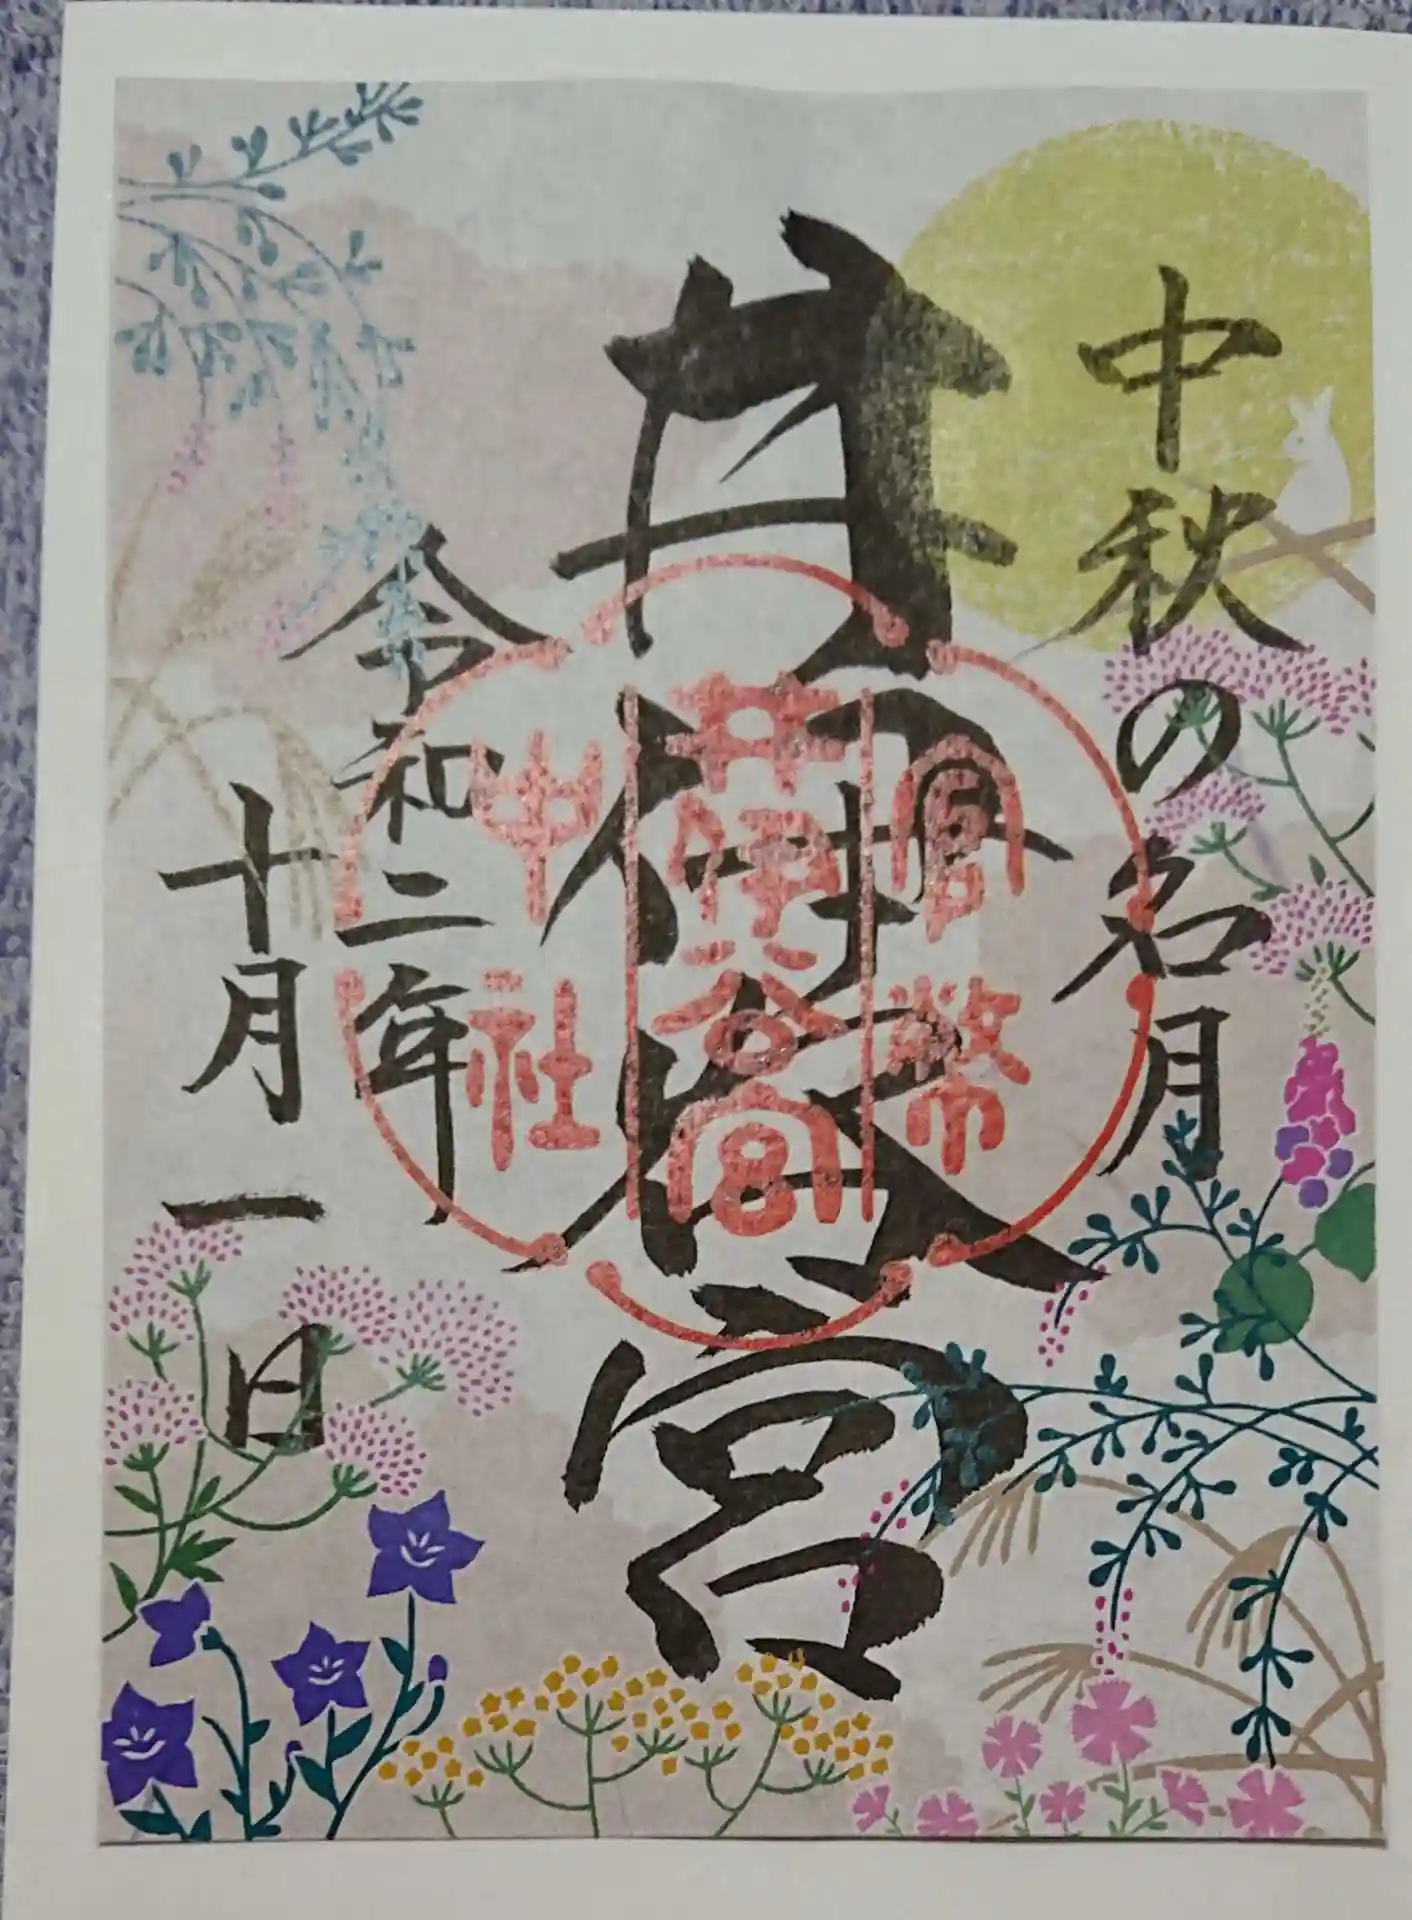 中秋の名月
井伊谷宮
官幣
井伊谷宮
中社
令和二年
十月一日